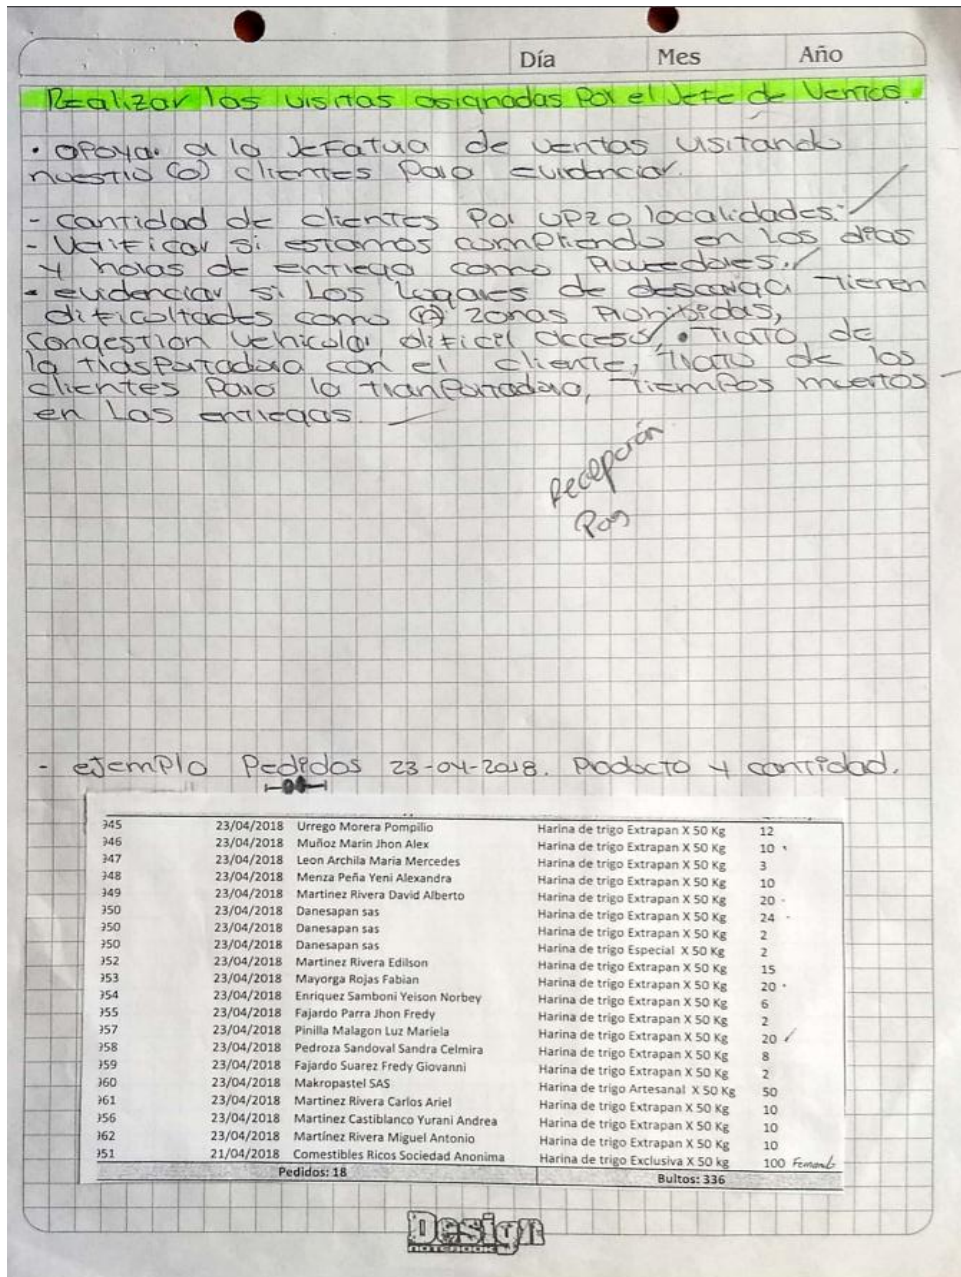 Día Mes Año
Realizar las visitas asignadas Por el Jefe de Ventas.
• apoyar a la Jefatua de ventas visitando
nuestro (a) clientes Para evidenciar.
- cantidad de clientes Por UPZ o localidades.
- Verificar si estamos cumpliendo en los dias
y horas de entrega como Proveedores.
- evidenciar si Los Lugares de descarga Tienen
dificultades como zonas Prohibidas,
Congestion vehicular dificil acceso, • Trato de
la trasportadora con el cliente, trato de los
clientes Para la tranportadora, Tiempos muertos
en Las entregas.
Recepción
- ejemplo Pedidos 23-04-2018. Producto y cantidad.
945 23/04/2018 Urrego Morera Pompilio Harina de trigo Extrapan X 50 Kg 12
946 23/04/2018 Muñoz Marin Jhon Alex Harina de trigo Extrapan X 50 Kg 10
947 23/04/2018 Leon Archila Maria Mercedes Harina de trigo Extrapan X 50 Kg 3
948 23/04/2018 Menza Peña Yeni Alexandra Harina de trigo Extrapan X 50 Kg 10
949 23/04/2018 Martinez Rivera David Alberto Harina de trigo Extrapan X 50 Kg 20
950 23/04/2018 Danesapan sas Harina de trigo Extrapan X 50 Kg 24
950 23/04/2018 Danesapan sas Harina de trigo Extrapan X 50 Kg 2
950 23/04/2018 Danesapan sas Harina de trigo Especial X 50 Kg 2
952 23/04/2018 Martinez Rivera Edilson Harina de trigo Extrapan X 50 Kg 15
953 23/04/2018 Mayorga Rojas Fabian Harina de trigo Extrapan X 50 Kg 20
954 23/04/2018 Enriquez Samboni Yeison Norbey Harina de trigo Extrapan X 50 Kg 6
955 23/04/2018 Fajardo Parra Jhon Fredy Harina de trigo Extrapan X 50 Kg 2
957 23/04/2018 Pinilla Malagon Luz Mariela Harina de trigo Extrapan X 50 Kg 20
958 23/04/2018 Pedroza Sandoval Sandra Celmira Harina de trigo Extrapan X 50 Kg 8
959 23/04/2018 Fajardo Suarez Fredy Giovanni Harina de trigo Extrapan X 50 Kg 2
960 23/04/2018 Makropastel SAS Harina de trigo Artesanal X 50 Kg 50
961 23/04/2018 Martinez Rivera Carlos Ariel Harina de trigo Extrapan X 50 Kg 10
956 23/04/2018 Martinez Castiblanco Yurani Andrea Harina de trigo Extrapan X 50 Kg 10
962 23/04/2018 Martínez Rivera Miguel Antonio Harina de trigo Extrapan X 50 Kg 10
951 21/04/2018 Comestibles Ricos Sociedad Anonima Harina de trigo Exclusiva X 50 kg 100
Pedidos: 18 Bultos: 336
Design
NOTEBOOK